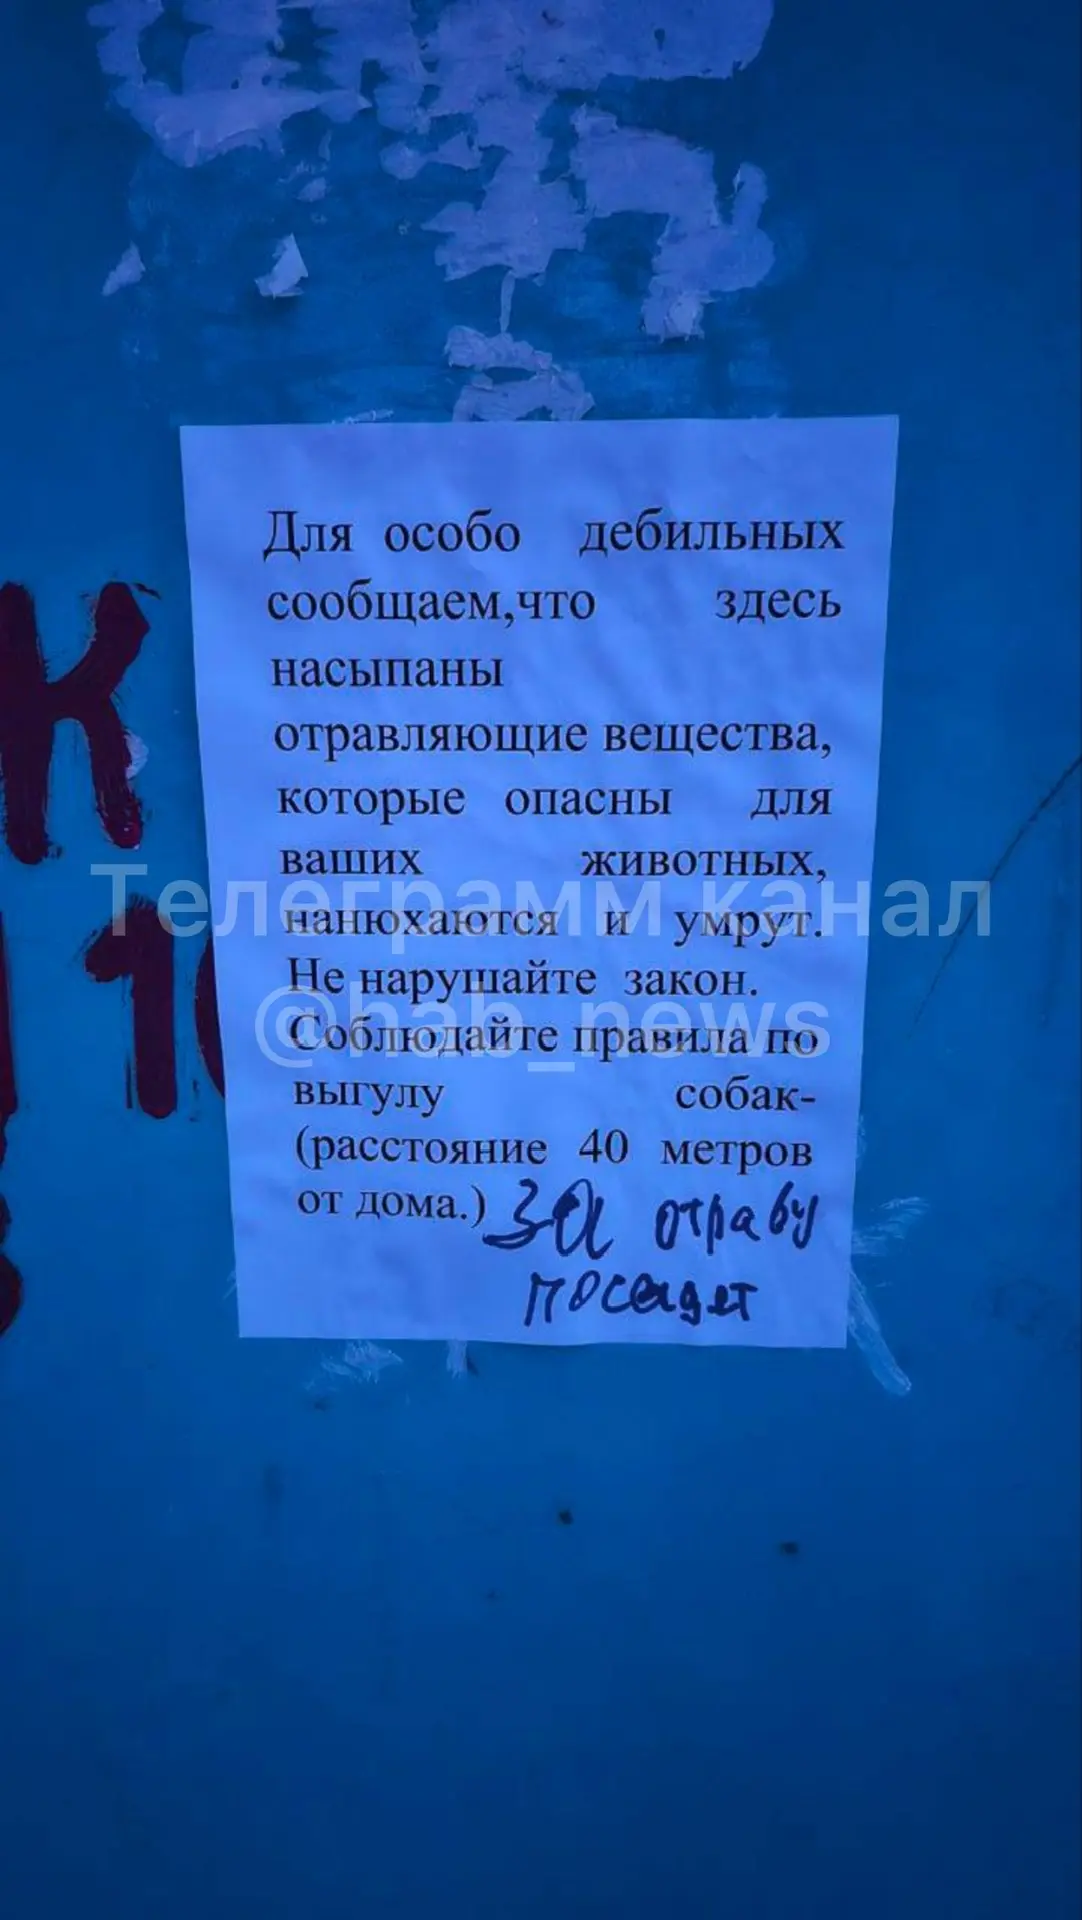 Для особо дебильных
сообщаем,что здесь
насыпаны
отравляющие вещества,
которые опасны для
ваших животных,
нанюхаются и умрут.
Не нарушайте закон.
Соблюдайте правила по
выгулу собак-
(расстояние 40 метров
от дома.) За отраву
посадят
К
10
Телеграмм канал
@hab_news